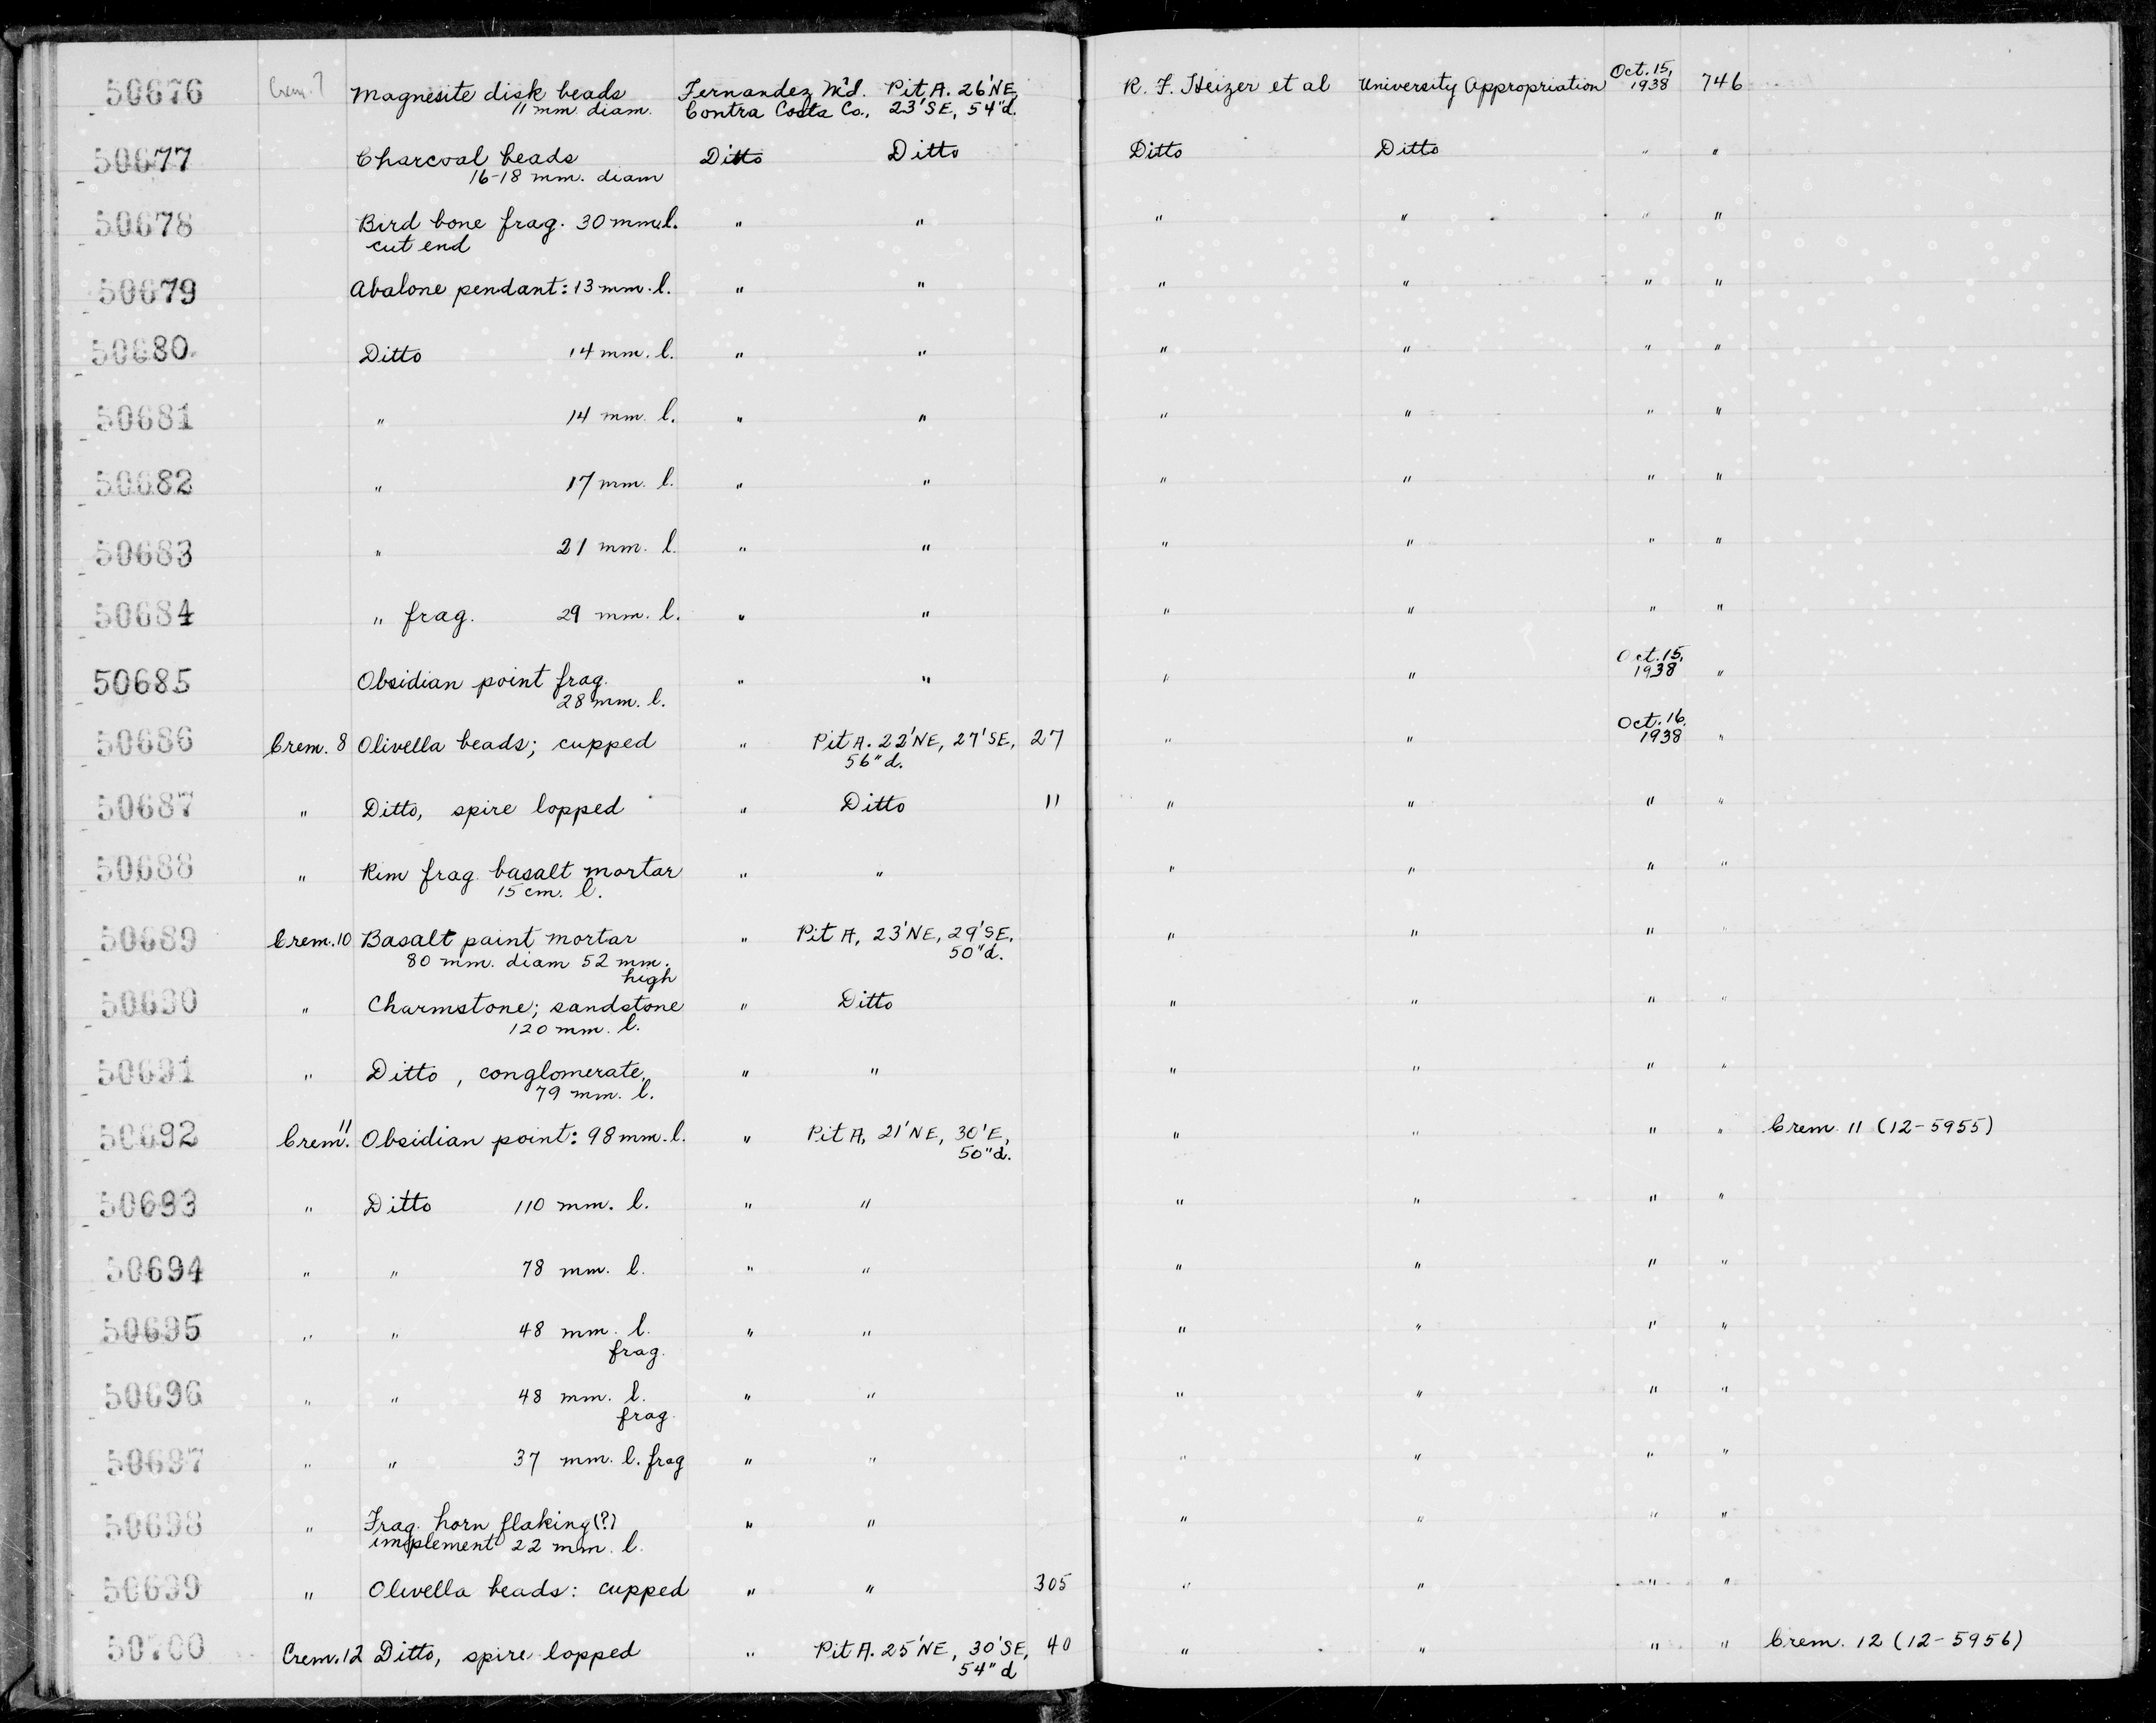 50676 Crem. 7 Magnesite disk beads Fernandez M'd. Pit A. 26'NE, R. F. Heizer et al University Appropriation Oct. 15, 1938 746
11 mm diam. Contra Costa Co., 23'SE, 54"d.
50677 Charcoal beads Ditto Ditto Ditto Ditto " "
16-18 mm. diam
50678 Bird bone frag. 30 mm. l. " " " " " "
cut end
50679 Abalone pendant: 13 mm. l. " " " " " "
50680 Ditto 14 mm. l. " " " " " "
50681 " 14 mm. l. " " " " " "
50682 " 17 mm. l. " " " " " "
50683 " 21 mm. l. " " " " " "
50684 " frag. 29 mm. l. " " " " " "
50685 Obsidian point frag. " " " " Oct. 15, 1938 "
28 mm. l.
50686 Crem. 8 Olivella beads; cupped " Pit A. 22'NE, 27'SE, 27 " " Oct. 16. 1938 "
56"d.
50687 " Ditto, spire lopped " Ditto 11 " " " "
50688 " Rim frag. basalt mortar " " " " " "
15 cm. l.
50689 Crem. 10 Basalt paint mortar " Pit A, 23'NE, 29'SE, " " " "
80 mm. diam 52 mm. 50"d.
high
50690 " Charmstone; sandstone " Ditto " " " "
120 mm. l.
50691 " Ditto, conglomerate, " " " " " "
79 mm. l.
50692 Crem. 11 Obsidian point: 98 mm. l. " Pit A, 21'NE, 30'E, " " " " Crem. 11 (12-5955)
50"d.
50693 " Ditto 110 mm. l. " " " " " "
50694 " " 78 mm. l. " " " " " "
50695 " " 48 mm. l. " " " " " "
frag.
50696 " " 48 mm. l. " " " " " "
frag.
50697 " " 37 mm. l. frag " " " " " "
50698 " Frag. horn flaking(?) " " " " " "
implement 22 mm. l.
50699 " Olivella beads: cupped " " 305 " " " "
50700 Crem. 12 Ditto, spire lopped " Pit A. 25'NE, 30'SE, 40 " " " " Crem. 12 (12-5956)
54"d